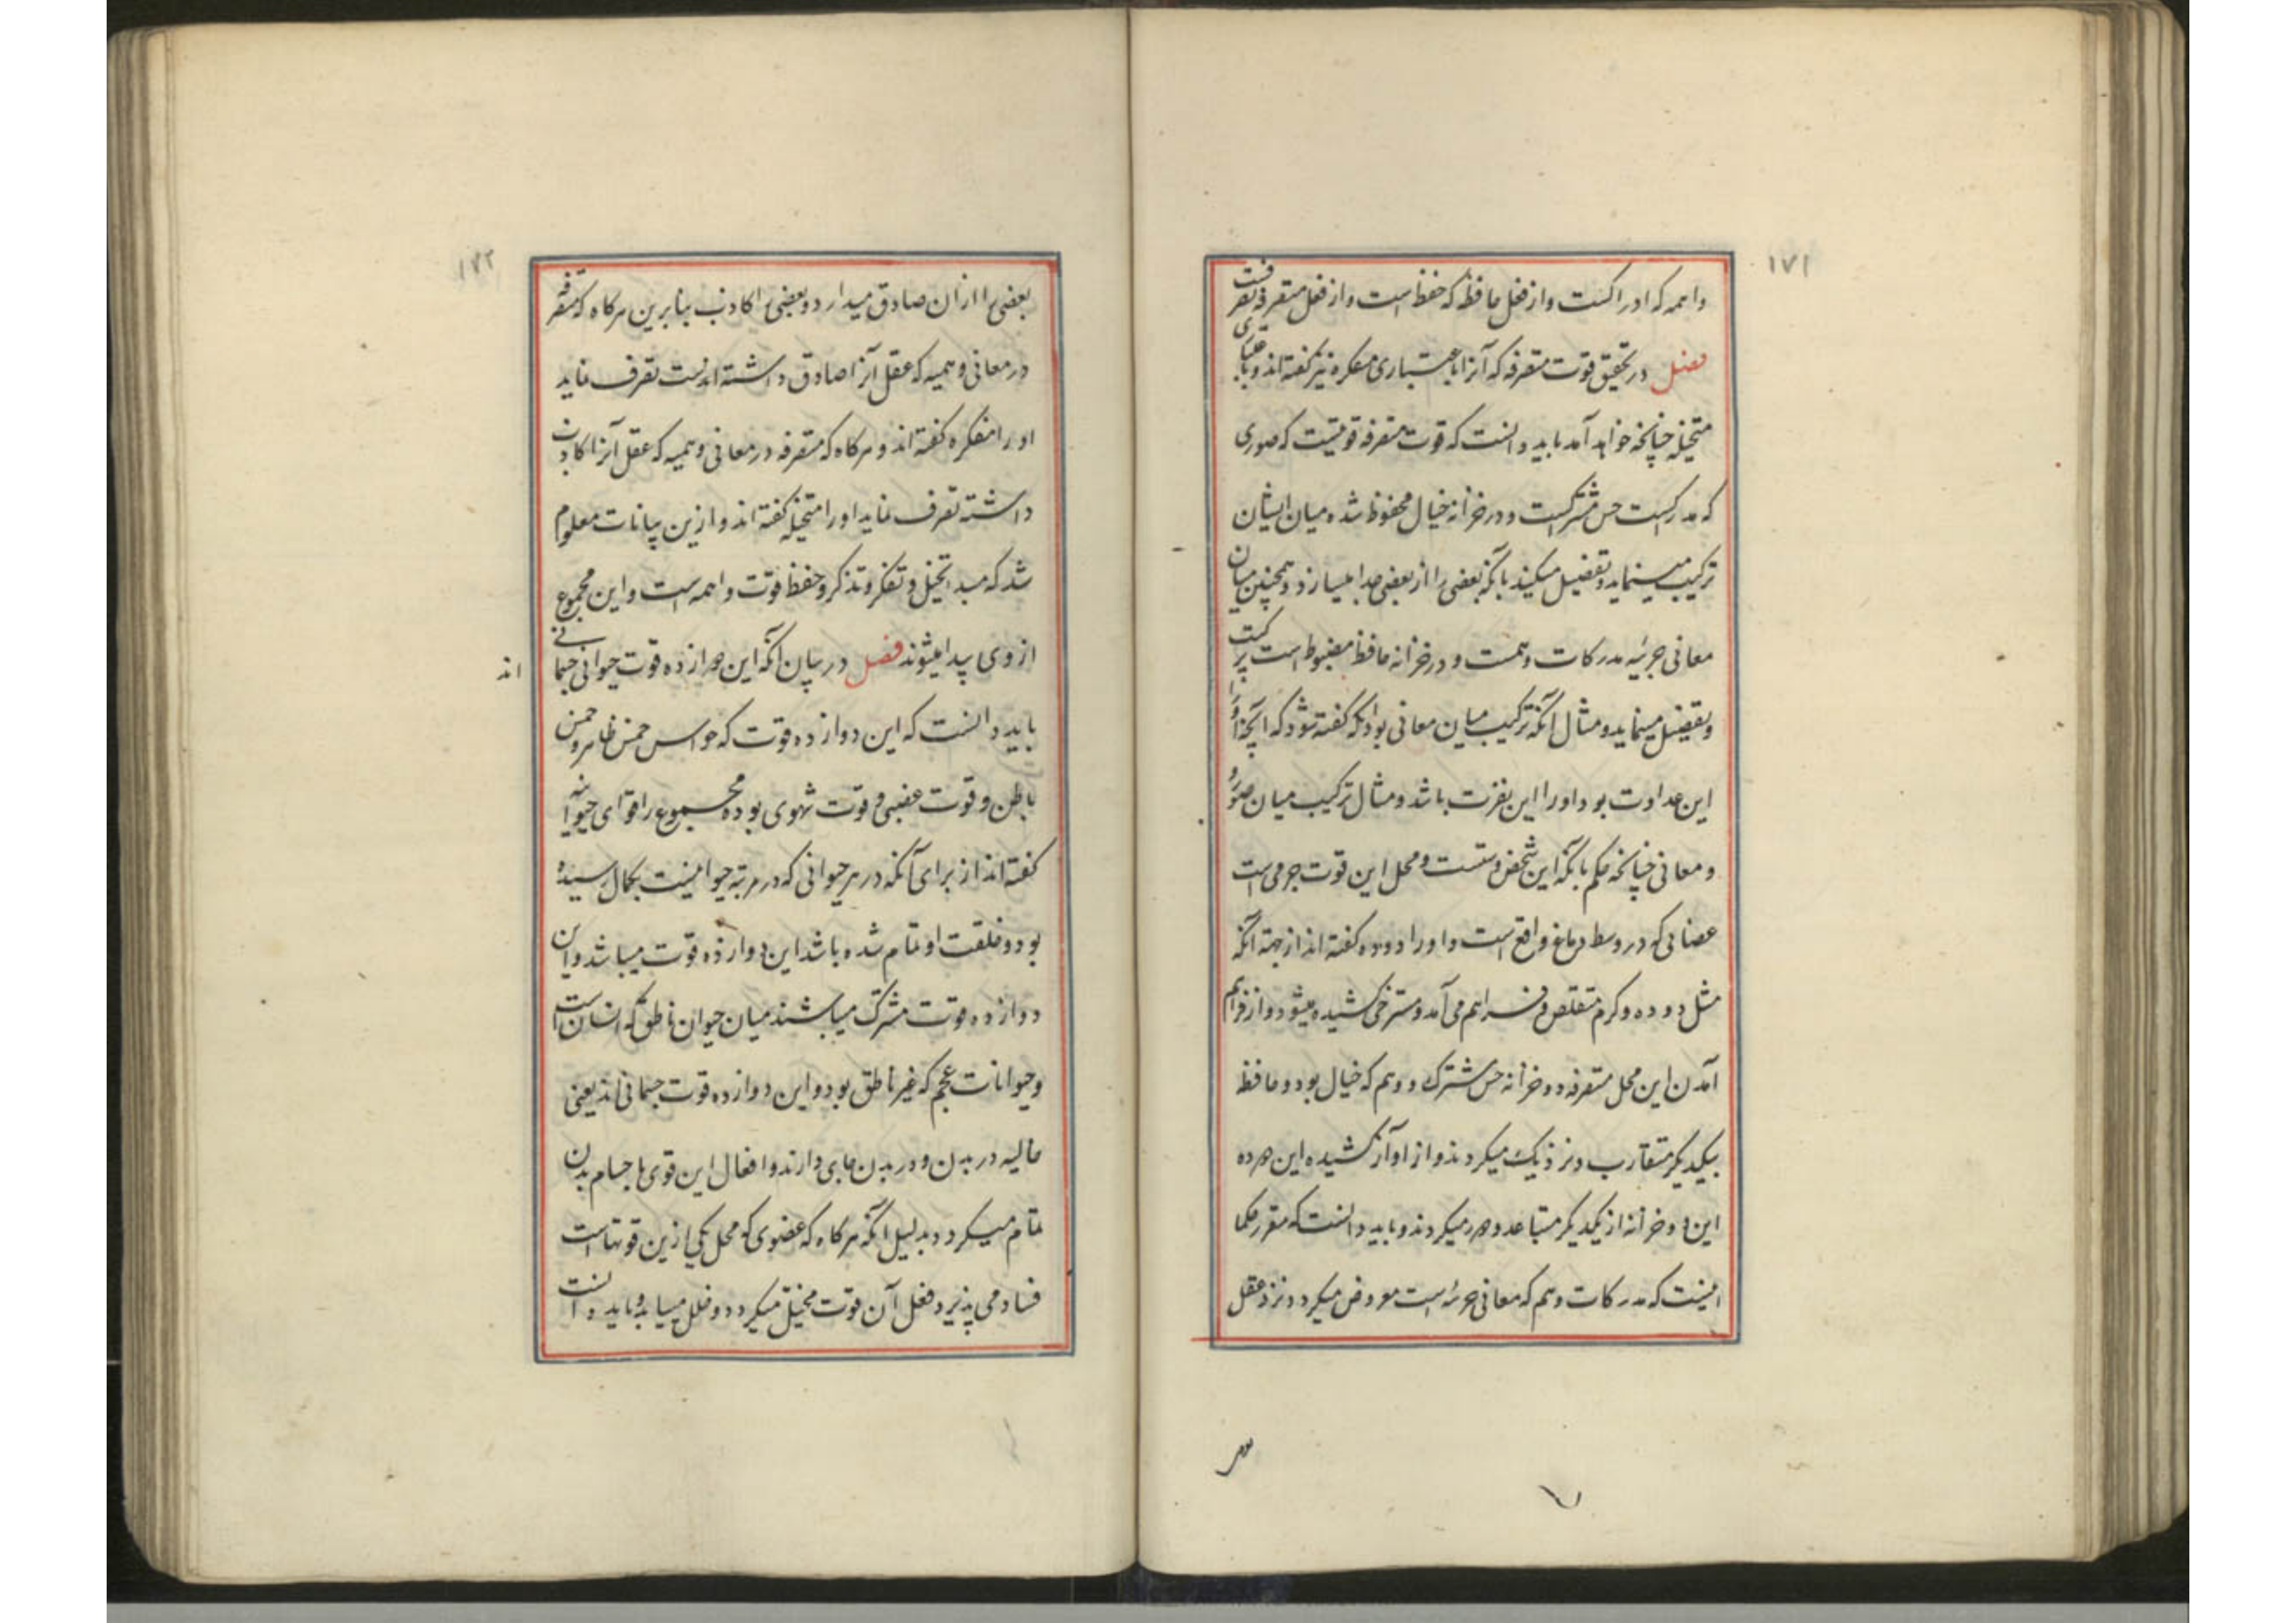 ۱۷۱
واهمه که ادراکست و از فعل حافظه که حفظ است و از فعل متصرفه تصرفست
فصل در تحقیق قوت متصرفه که آنرا باعتباری مفکره نیز گفته‌اند و باعتباری
متخیله چنانچه خواهد آمد باید دانست که قوت متصرفه قوتیست که صوری
که مدرکست حس مشترکست و در خزانه خیال محفوظ شده میان ایشان
ترکیب مینماید و تفصیل میکند بآنکه بعضی را از بعضی جدا میسازد و همچنین میان
معانی جزئیه مدرکات وهمست و در خزانه حافظه مضبوط است ترکیب
و تفصیل مینماید و مثال آنکه ترکیب میان معانی بود آنکه گفته شود که آنچه او را
این عداوت بود او را این نفرت باشد و مثال ترکیب میان صور و
و معانی چنانچه حکم بآنکه این شخص دوستست و محل این قوت جرمی است
عضائی که در وسط دماغ واقع است و او را دوده گفته‌اند از جهة آنکه
مثل دوده و کرم متقلص و فراهم می‌آمد و مسترخی کشیده میشود و از فراهم
آمدن این محل متصرفه دو خزانه حس مشترک و وهم که خیال بود و حافظه
بیکدیگر متقارب و نزدیک میگردند و از او آن کشیده این هر ده
این دو خزانه از یکدیگر متباعد و دور میگردند و باید دانست که مقرر حکما
اینست که مدرکات وهم که معانی جزئه است معروض میگردد نزد عقل
۱۷۲
بعضی را ازان صادق میدارد و بعضی را کاذب بنابرین هرگاه که متصرفه
در معانی وهمیه که عقل آنرا صادق داشته اندست تصرف نماید
او را مفکره گفته‌اند و هرگاه که متصرفه در معانی وهمیه که عقل آنرا کاذب
داشته تصرف نماید او را متخیله گفته‌اند و ازین بیانات معلوم
شد که مبدا تخیل و تفکر و تذکر و حفظ قوت واهمه است و این مجموع
از وی پیدا میشوند فصل در بیان آنکه این دوازده قوت حیوانی جسمانی
اند
باید دانست که این دوازده قوت که حواس خمس ظاهر و خمس
باطن و قوت غضبی و قوت شهوی بوده مجموع را قوای حیوانیه
گفته‌اند از برای آنکه در هر حیوانی که در مرتبه حیوانیت بکمال رسیده
بود و خلقت او تمام شده باشد این دوازده قوت میباشد و این
دوازده قوت مشترک میباشند میان حیوان ناطق که انسان است
و حیوانات عجم که غیر ناطق بود و این دوازده قوت جسمانی‌اند یعنی
حالیه در بدن و در بدن جای دارند و افعال این قوی باجسام بدن
تمام میگردد بدلیل آنکه هرگاه که عضوی که محل یکی ازین قوتهاست
فساد می‌پذیرد فعل آن قوت مختل میگردد و خلل مییابد و باید دانست